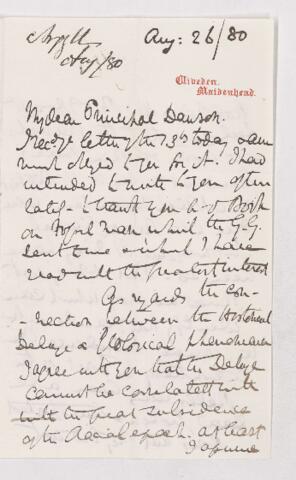 Argyll
Aug/80
Aug: 26/80
Cliveden,
Maidenhead.
My dear Principal Dawson.
I recd yr letter of the 13th today & am
much obliged to you for it. I had
intended to write to you often
lately to thank you for yr Book
on Fossil Man which the G.G.
sent me & which I have
read with the greatest interest
As regards the con-
nection between the Historical
Deluge & Geological phenomena
I agree with you that the Deluge
cannot be correlated with
with the great subsidence
of the Glacial epoch. at least
I assume